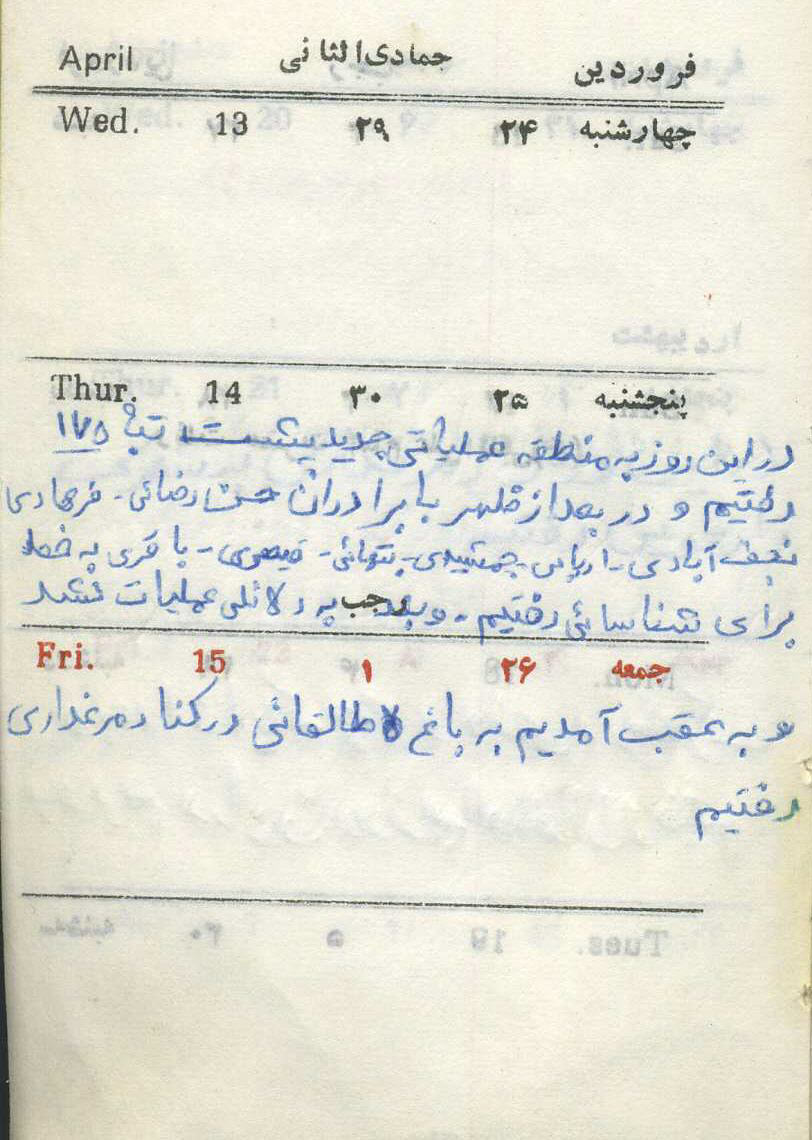 فروردین جمادی‌الثانی April
چهارشنبه ۲۴ ۲۹ 13 Wed.
پنجشنبه ۲۵ ۳۰ 14 Thur.
در این روز به منطقه عملیاتی جدید پشت تپه ۱۷۵
رفتیم و در بعد از ظهر با برادران حسن رضائی - فرهادی
نجف آبادی - جمشیدی - قیصری - باقری به خط
برای شناسائی رفتیم - و به دلائلی عملیات نشد
جمعه ۲۶ ۱ 15 Fri.
رجب
و به عقب آمدیم به باغ طالقانی در کنار مرغداری
رفتیم